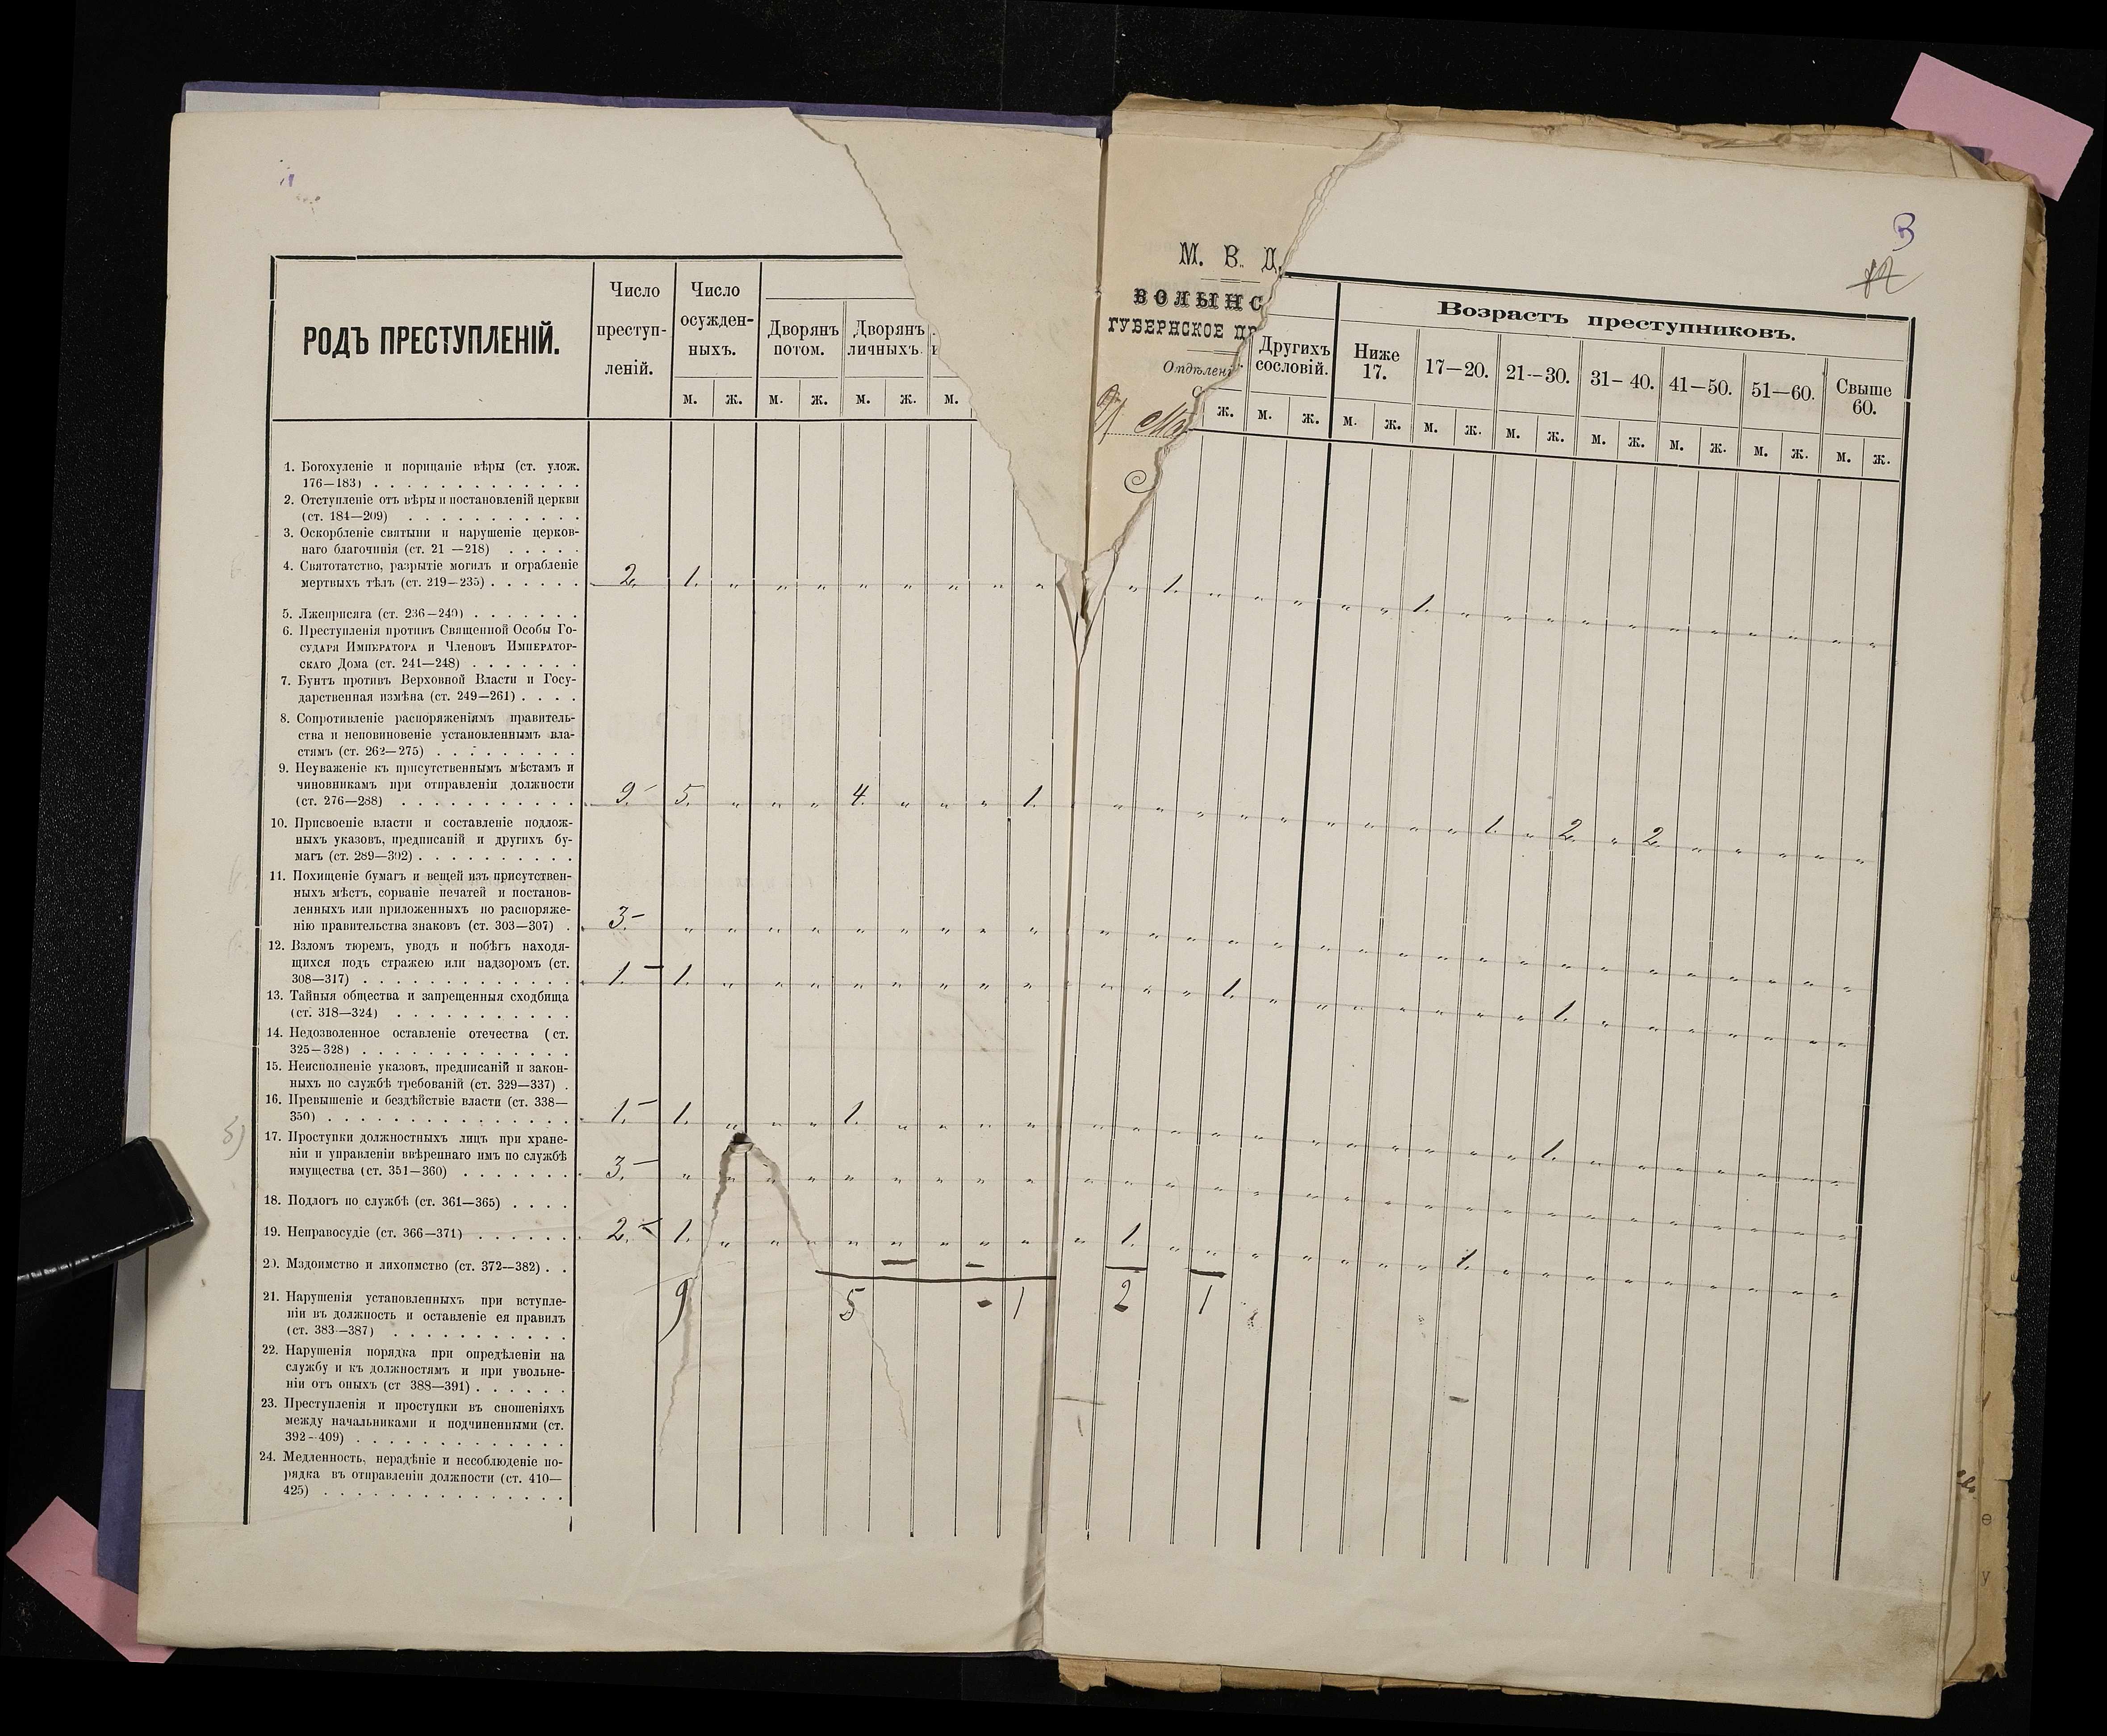 3
М. В. Д.
ВОЛЫНС
ГУБЕРНСКОЕ ПР
Отдѣлені
РОДЪ ПРЕСТУПЛЕНІЙ.
Число преступ-леній.
Число осужден-ныхъ.
Дворянъ потом.
Дворянъ личныхъ.
Другихъ сословій.
Возрастъ преступниковъ.
Ниже 17.
17—20.
21—30.
31—40.
41—50.
51—60.
Свыше 60.
м. ж. м. ж. м. ж. м. ж. м. ж. м. ж. м. ж. м. ж. м. ж. м. ж. м. ж. м. ж.
1. Богохуленіе и порицаніе вѣры (ст. улож.
176—183)
2. Отступленіе отъ вѣры и постановленій церкви
(ст. 184—209)
3. Оскорбленіе святыни и нарушеніе церков-
наго благочинія (ст. 21 —218)
4. Святотатство, разрытіе могилъ и ограбленіе
мертвыхъ тѣлъ (ст. 219—235) 2. 1. 1. 1.
5. Лжеприсяга (ст. 236—240)
6. Преступленія противъ Священной Особы Го-
сударя Императора и Членовъ Император-
скаго Дома (ст. 241—248)
7. Бунтъ противъ Верховной Власти и Госу-
дарственная измѣна (ст. 249—261)
8. Сопротивленіе распоряженіямъ правитель-
ства и неповиновеніе установленнымъ вла-
стямъ (ст. 262—275)
9. Неуваженіе къ присутственнымъ мѣстамъ и
чиновникамъ при отправленіи должности
(ст. 276—288) 9. 5. 4. 1. 1. 2. 2.
10. Присвоеніе власти и составленіе подлож-
ныхъ указовъ, предписаній и другихъ бу-
магъ (ст. 289—302)
11. Похищеніе бумагъ и вещей изъ присутствен-
ныхъ мѣстъ, сорваніе печатей и постанов-
ленныхъ или приложенныхъ по распоряже-
нію правительства знаковъ (ст. 303—307) 3.
12. Взломъ тюремъ, уводъ и побѣгъ находя-
щихся подъ стражею или надзоромъ (ст.
308—317) 1. 1. 1. 1.
13. Тайныя общества и запрещенныя сходбища
(ст. 318—324)
14. Недозволенное оставленіе отечества (ст.
325—328)
15. Неисполненіе указовъ, предписаній и закон-
ныхъ по службѣ требованій (ст. 329—337)
16. Превышеніе и бездѣйствіе власти (ст. 338—
350) 1. 1. 1. 1.
17. Проступки должностныхъ лицъ при хране-
ніи и управленіи ввѣреннаго имъ по службѣ
имущества (ст. 351—360) 3.
18. Подлогъ по службѣ (ст. 361—365)
19. Неправосудіе (ст. 366—371) 2. 1. 1. 1.
20. Мздоимство и лихоимство (ст. 372—382)
9 5 - 1 2 1
21. Нарушенія установленныхъ при вступле-
ніи въ должность и оставленіе ея правилъ
(ст. 383—387)
22. Нарушенія порядка при опредѣленіи на
службу и къ должностямъ и при увольне-
ніи отъ оныхъ (ст 388—391)
23. Преступленія и проступки въ сношеніяхъ
между начальниками и подчиненными (ст.
392—409)
24. Медленность, нерадѣніе и несоблюденіе по-
рядка въ отправленіи должности (ст. 410—
425)